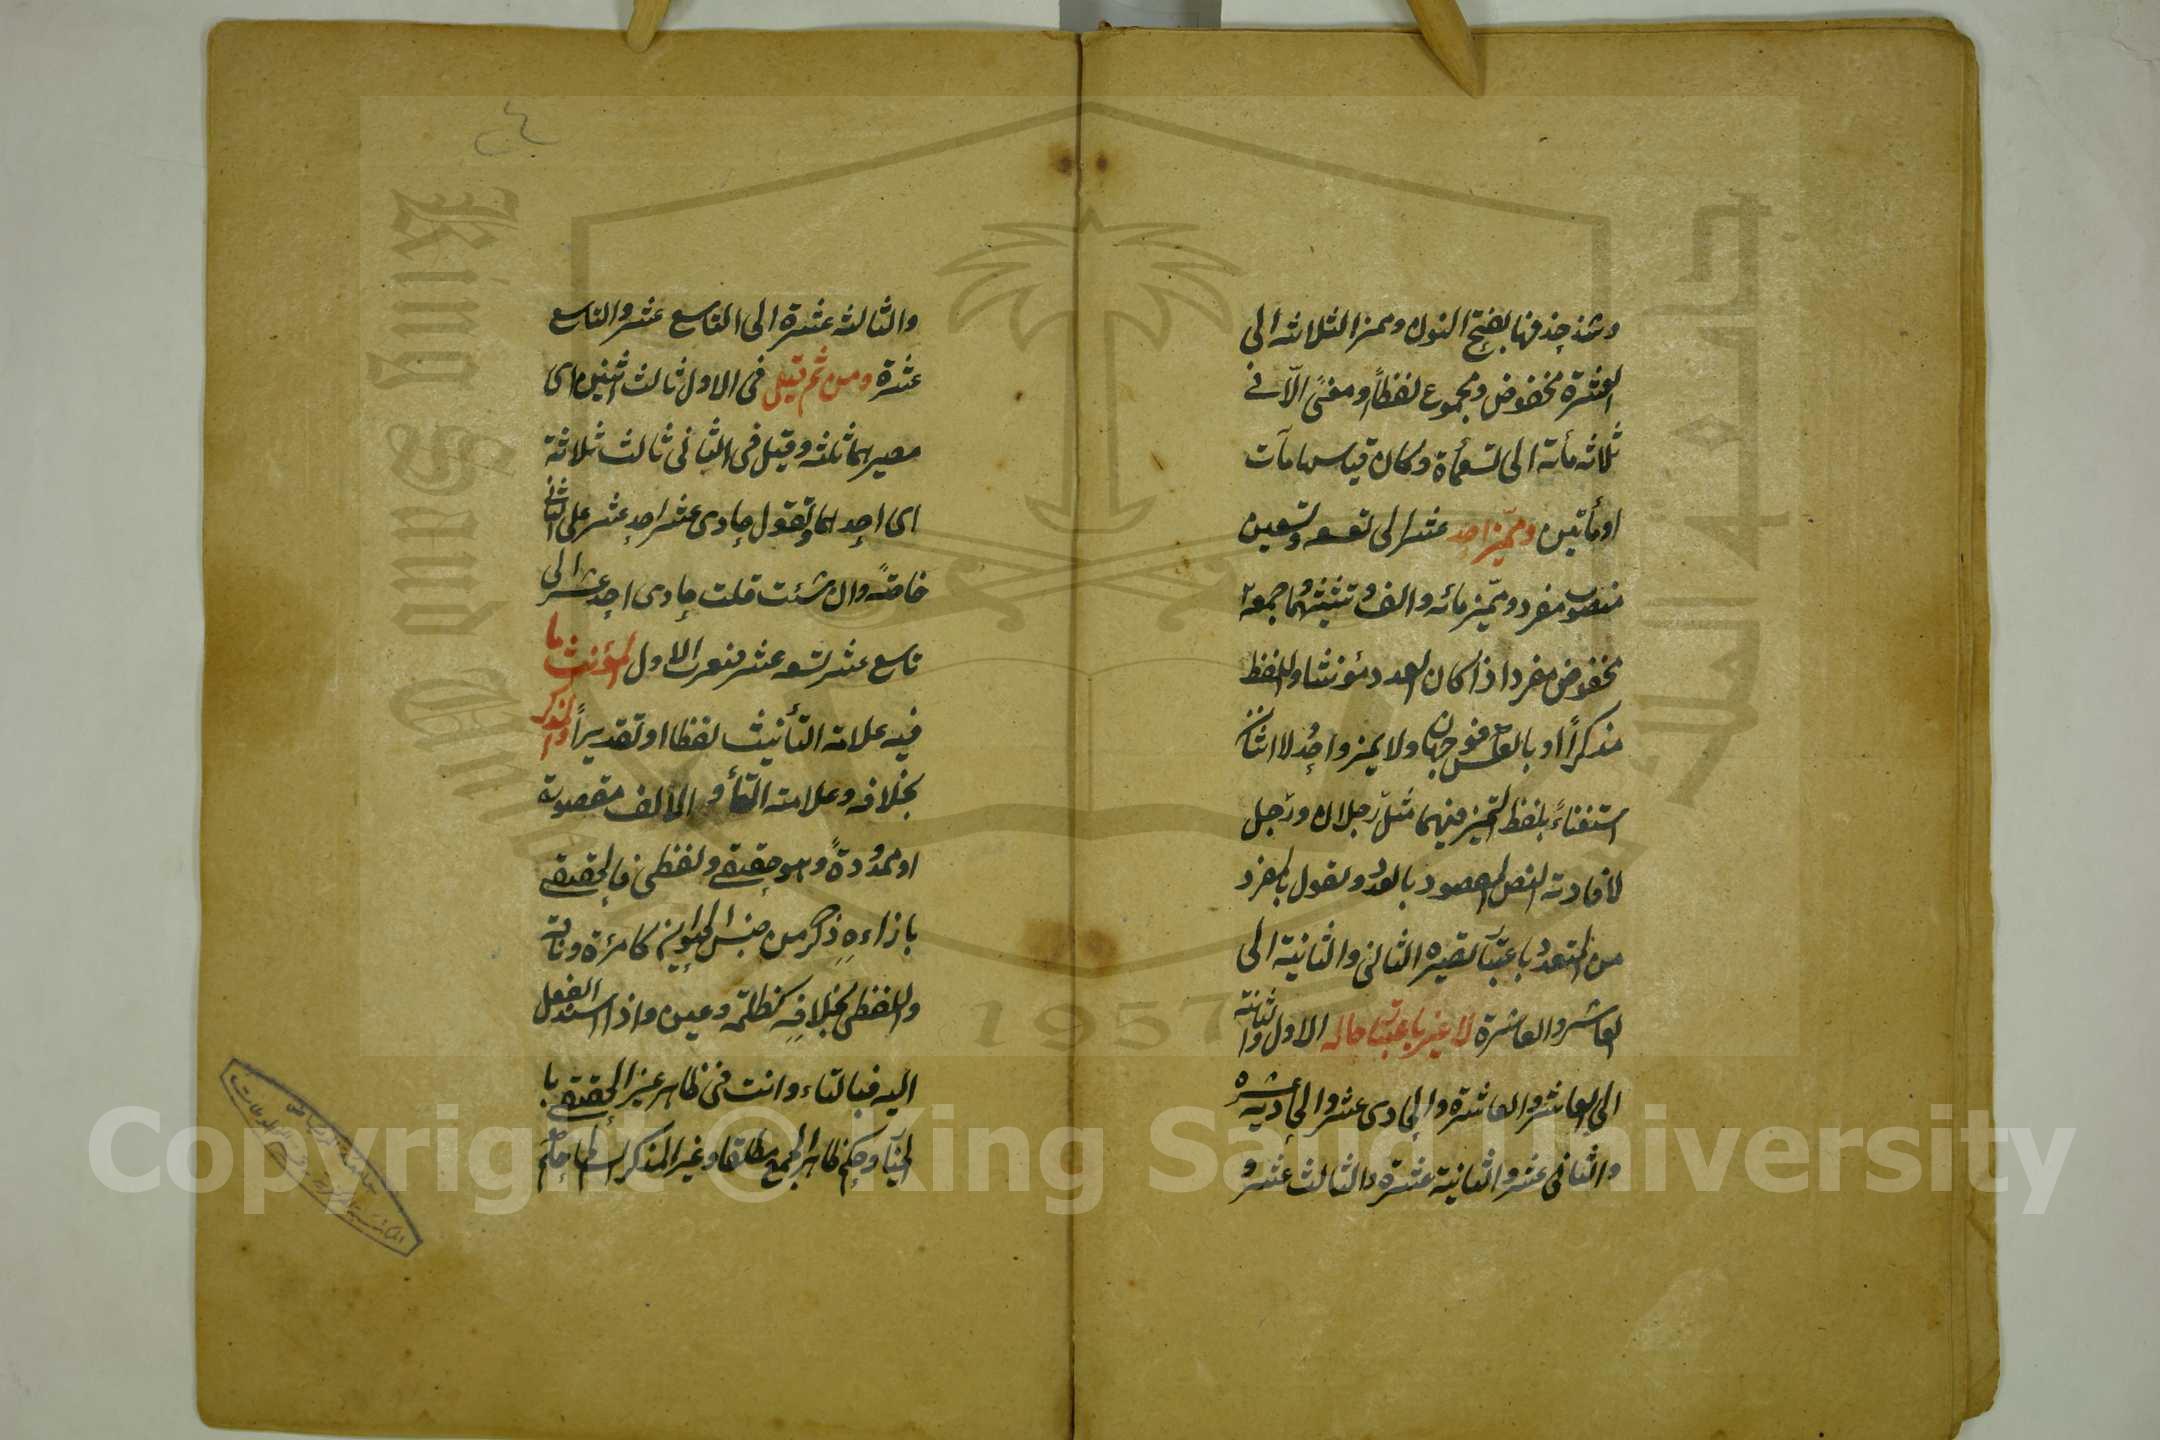 وشذ حذفها بفتح النون ومميز الثلاثة الى
العشرة مخفوض ومجموع لفظاً او معنىً الّا في
ثلاثه مأته الى تسعمأة وكان قياسها مآت
او مأتين ومميّز احد عشر الى تسعه وتسعين
منصوب مفرد ومميّز مائه والف وتثنيتهما وجمعه
مخفوض مفرد اذا كان المعدود مؤنثا واللفظ
مذكراً او بالعكس فوجهان ولا يميز واحدٌ لا اثنان
استغناءً بلفظ التميز فيهما مثل رجلان ورجل
لافادته النص المقصود بالعدد وتقول بالمفرد
من المتعدد باعتبار تصييره الثاني والثانية الى
العاشر والعاشرة لا غير باعتبار حاله الاول والثانية
الى العاشر والعاشرة والحادى عشر والحادية عشره
والثانى عشر والثانية عشرة والثالث عشر و
والثالثه عشرة الى التاسع عشر والتاسع
عشرة ومن ثم قيل فى الاول ثالث اثنين اى
مصيرهما ثلثه وقيل فى الثانى ثالث ثلاثة
اى احدها وتقول حادى عشر احد عشر على الثانى
خاصّةً وان شئت قلت حادى احد عشر الى
تاسع عشر تسعه عشر فتعرب الاول المؤنث ما
فيه علامة التأنيث لفظا او تقديراً والمذكر
بخلافه وعلامته التأ و الالف مقصورة
او ممدودةً وهو حقيقى ولفظى فالحقيقى
بازاءهِ ذكر من جنس الحيوان كامرئة وناقة
واللفظى بخلافِهِ كظلمّة وعين واذا اسند الفعل
اليه فبالتاء وانت فى ظاهر غير الحقيقى با
لخيار وحكم ظاهر الجمع مطلقا وغير المذكر السالم حكم
جامعة الرياض
King Saud University
1957
Copyright © King Saud University